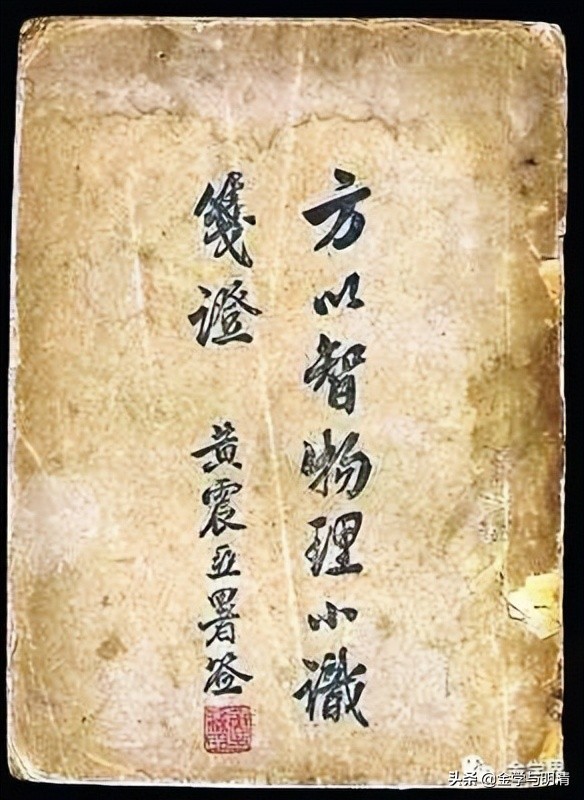 方以智物理小識
箋證
黄震亞署签
头条 @金学与明清